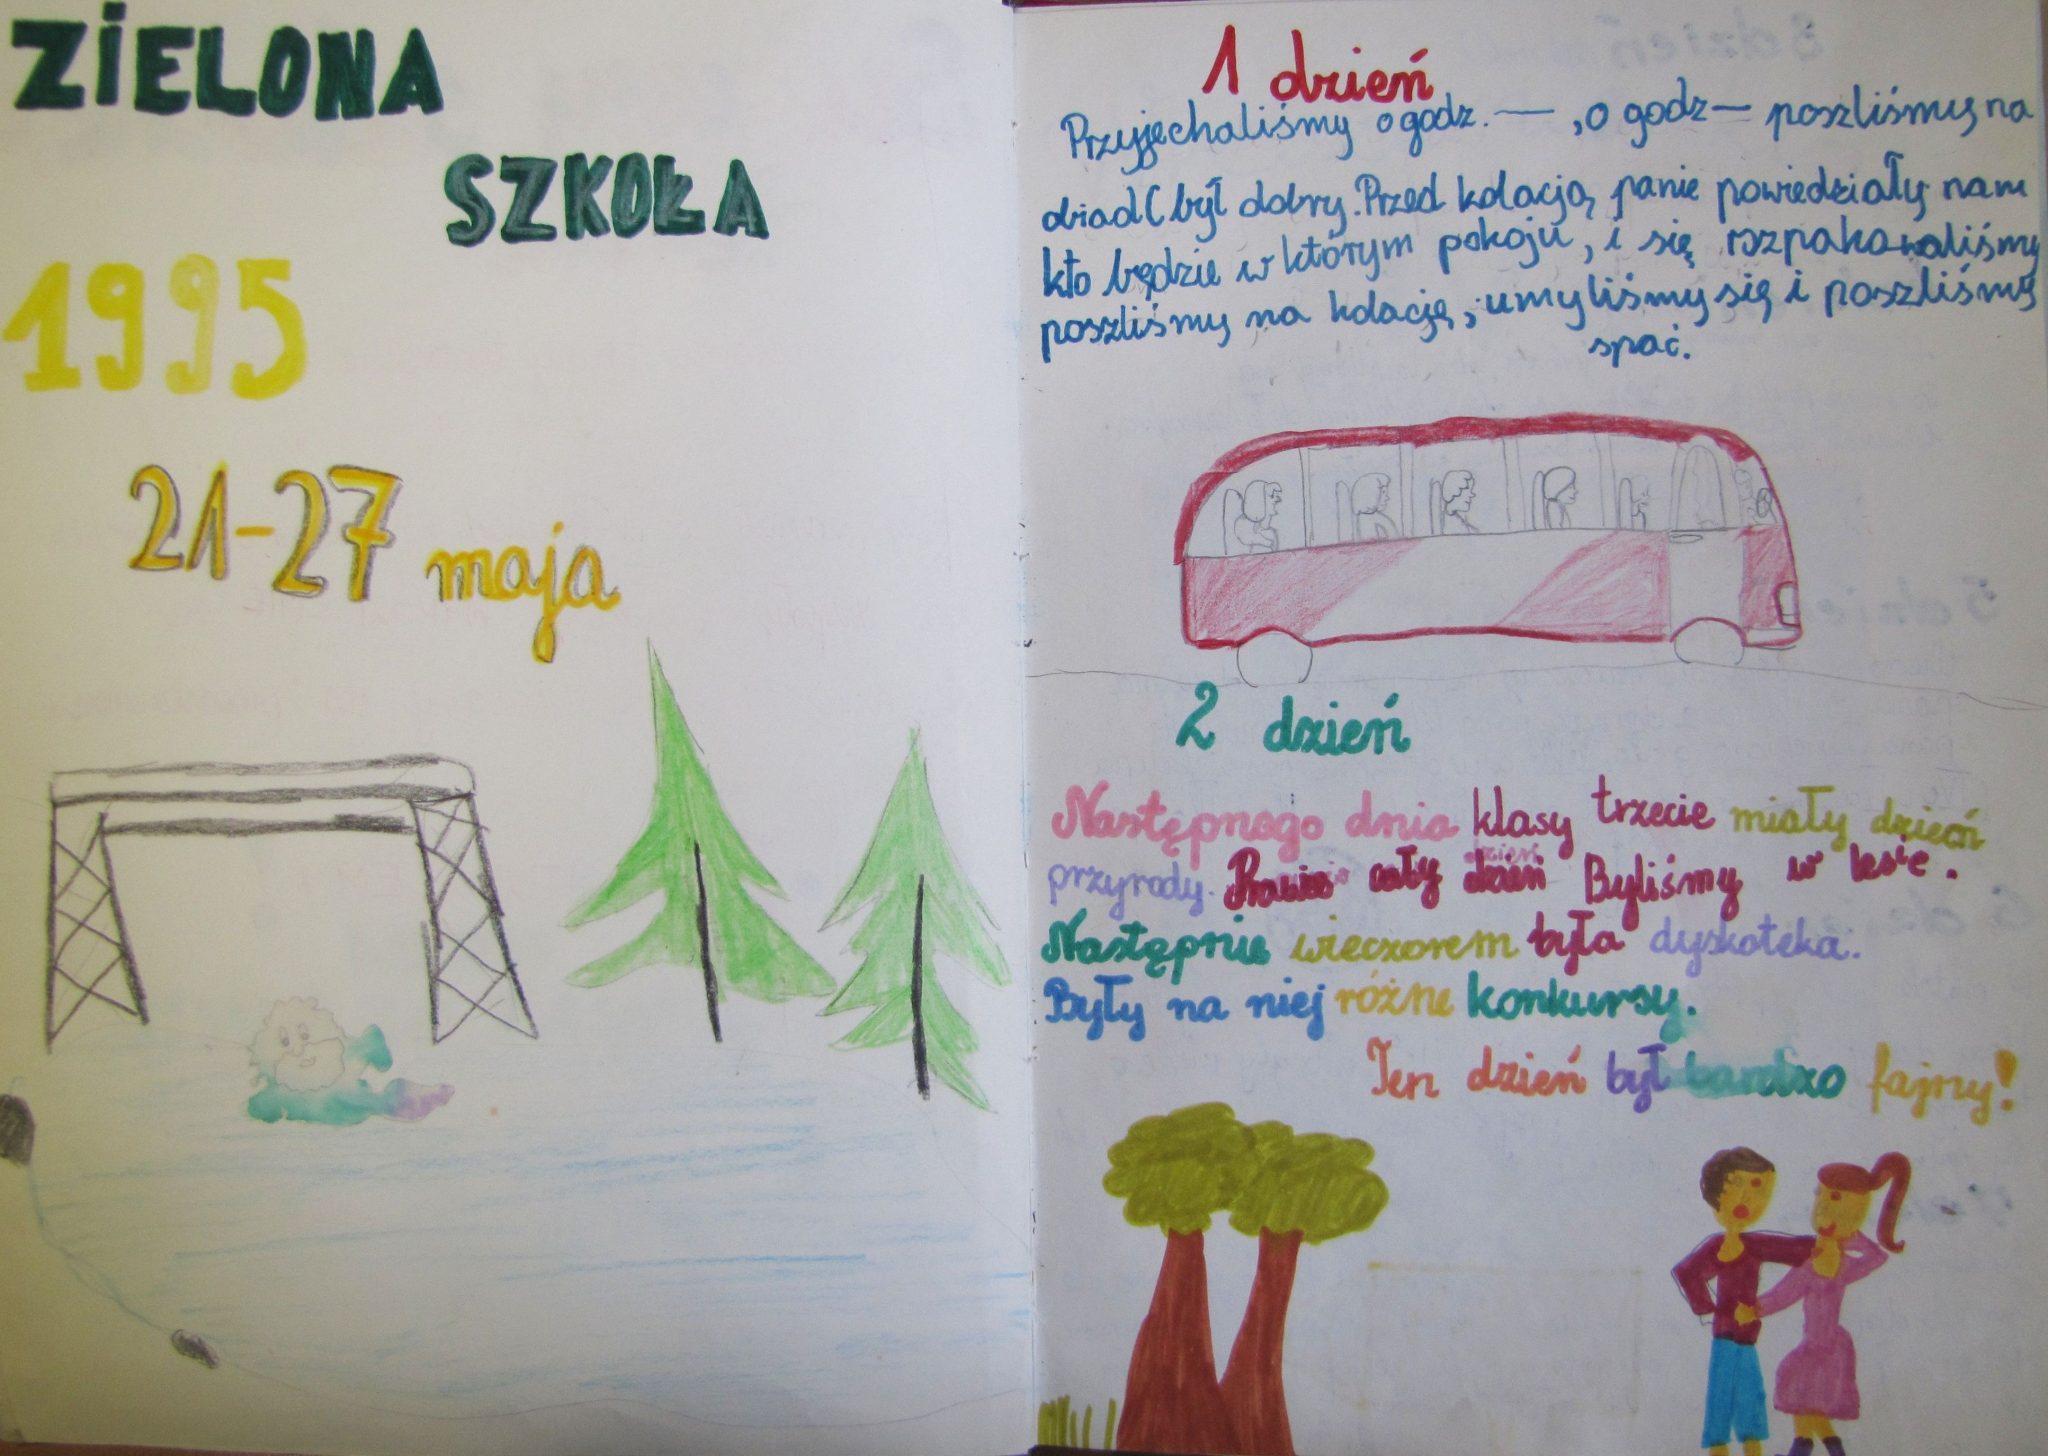 ZIELONA
SZKOŁA
1995
21-27 maja
1 dzień
Przyjechaliśmy o godz. — , o godz — poszliśmy na
obiad ( był dobry. Przed kolacją panie powiedziały nam
kto będzie w którym pokoju, i się rozpakowaliśmy
poszliśmy na kolację, umyliśmy się i poszliśmy
spać.
2 dzień
Następnego dnia klasy trzecie miały dzień
przyrody. Prawie cały dzień Byliśmy w lesie.
Następnie wieczorem była dyskoteka.
Były na niej różne konkursy.
Ten dzień był bardzo fajny!